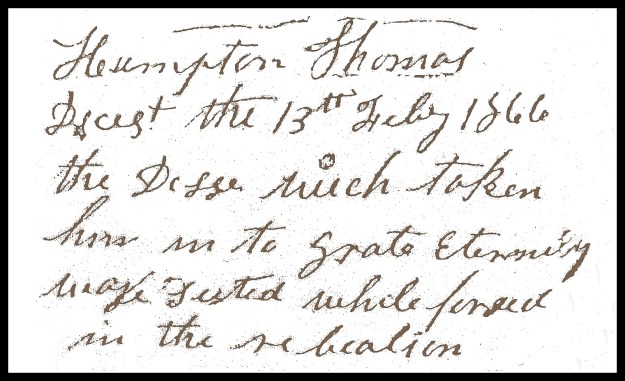 Humpton Thomas
Dscest the 13th Feby 1866
the Desse which token
him in to grate Eternity
was while forsed
in the rebealion